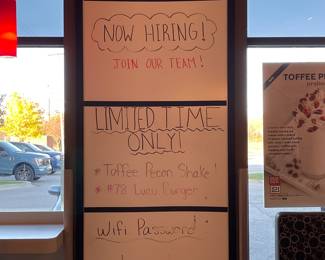 NOW HIRING!
JOIN OUR TEAM!
LIMITED TIME
ONLY!
* Toffee Pecan Shake!
* #78 Luau Burger!
Wifi Password:
TOFFEE P